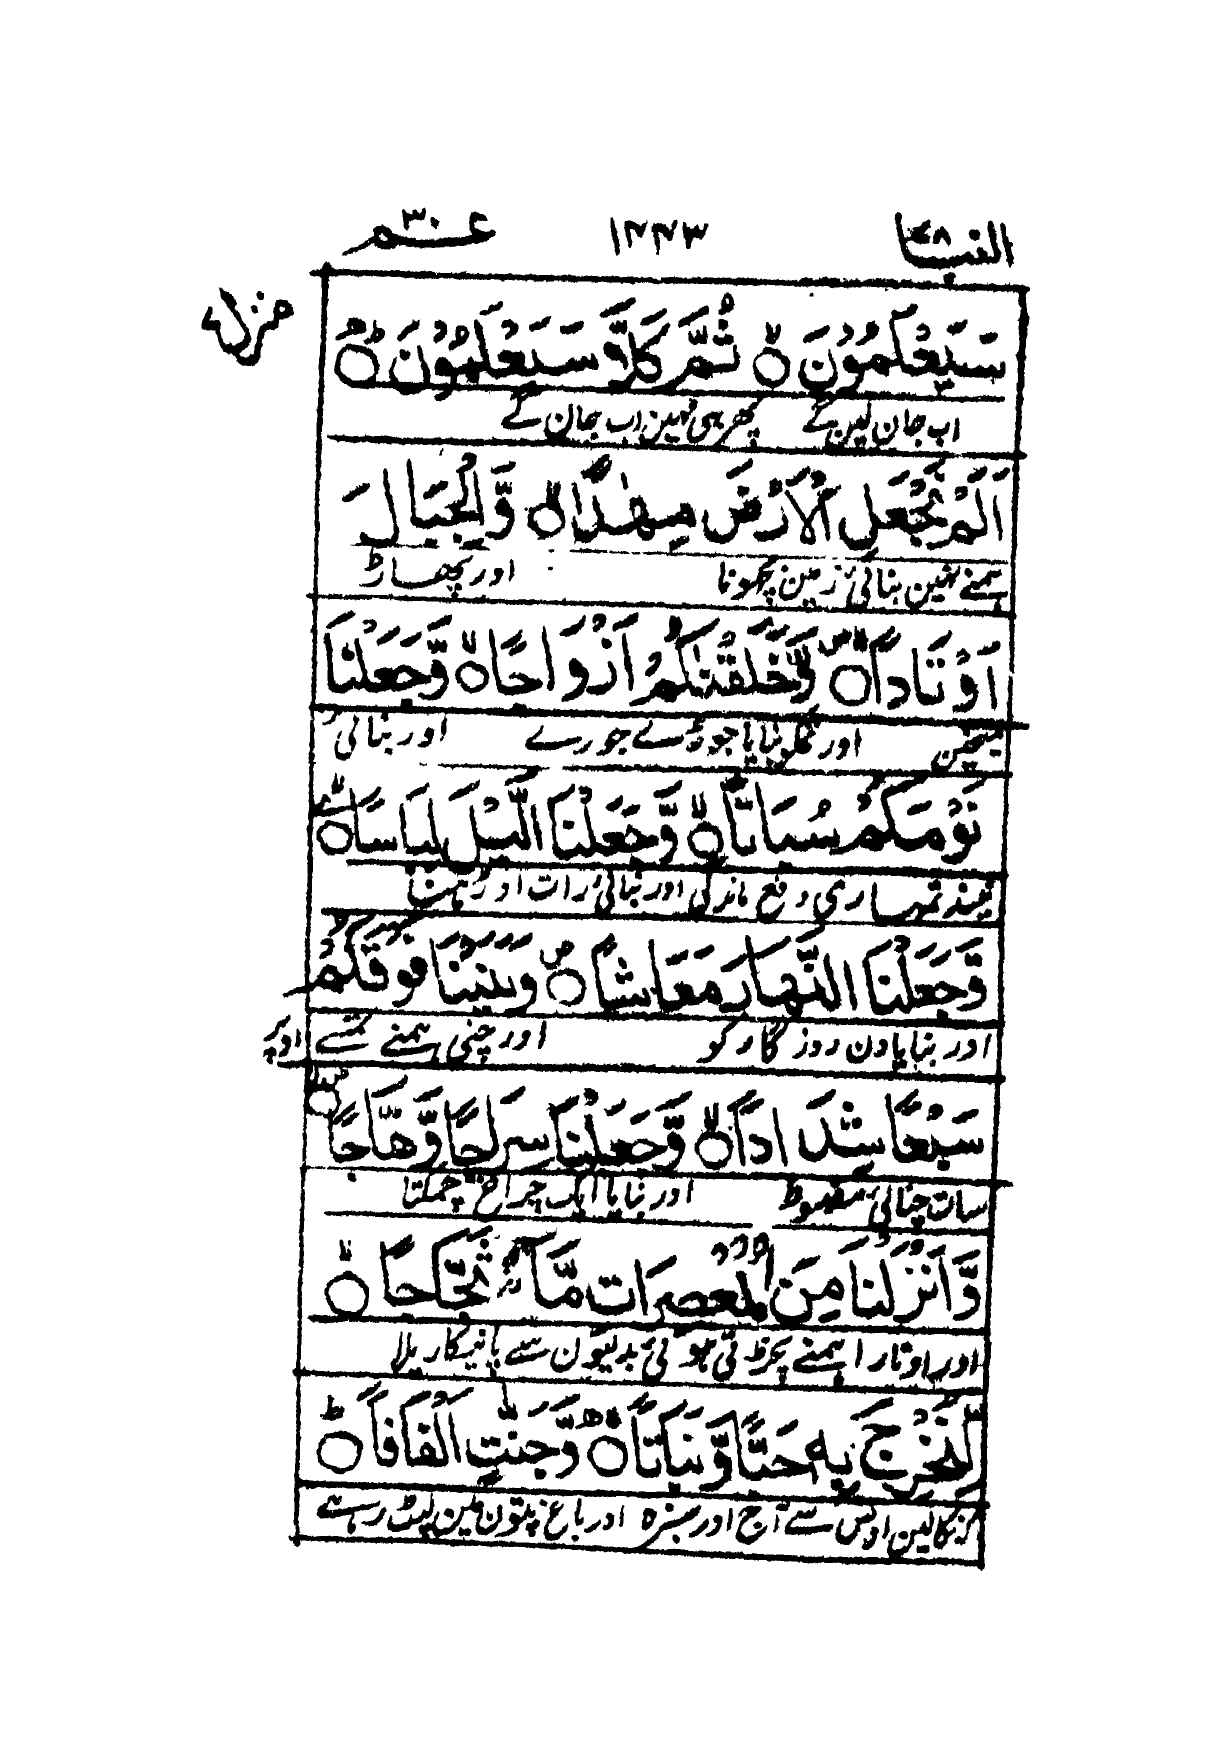 النبا ٧٨ ١٢٤٣ عم ٣٠
منزل
سَيَعْلَمُوْنَ ۝ ثُمَّ كَلَّا سَيَعْلَمُوْنَ ۝
اب جان لین گے پھر بھی نہین اب جان گے
اَلَمْ نَجْعَلِ الْاَرْضَ مِهٰدًا ۝ وَّالْجِبَالَ
ہمنے نہین بنائی زمین بچھونا اور پہاڑ
اَوْتَادًا ۝ وَّخَلَقْنٰكُمْ اَزْوَاجًا ۝ وَّجَعَلْنَا
میخین اور تمکو بنایا جوڑے جورے اور بنائی
نَوْمَكُمْ سُبَاتًا ۝ وَّجَعَلْنَا الَّيْلَ لِبَاسًا ۝
نیند تمہاری دفع ماندگی اور بنائی رات اوڑہنا
وَّجَعَلْنَا النَّهَارَ مَعَاشًا ۝ وَّبَنَيْنَا فَوْقَكُمْ
اور بنایا دن روزگار کو اور چنی ہمنے تمسے اوپر
سَبْعًا شِدَادًا ۝ وَّجَعَلْنَا سِرَاجًا وَّهَّاجًا ۝
سات چنائی مضبوط اور بنایا ایک چراغ چمکتا
وَّاَنْزَلْنَا مِنَ الْمُعْصِرَاتِ مَآءً ثَجَّاجًا ۝
اور اوتارا ہمنے نچڑتی ہوئی بدلیون سے پانیکا ریلا
لِّنُخْرِجَ بِهٖ حَبًّا وَّنَبَاتًا ۝ وَّجَنّٰتٍ اَلْفَافًا ۝
کہ نکالین اوس سے اناج اور سبزہ اور باغ پتون مین لپٹ رہے